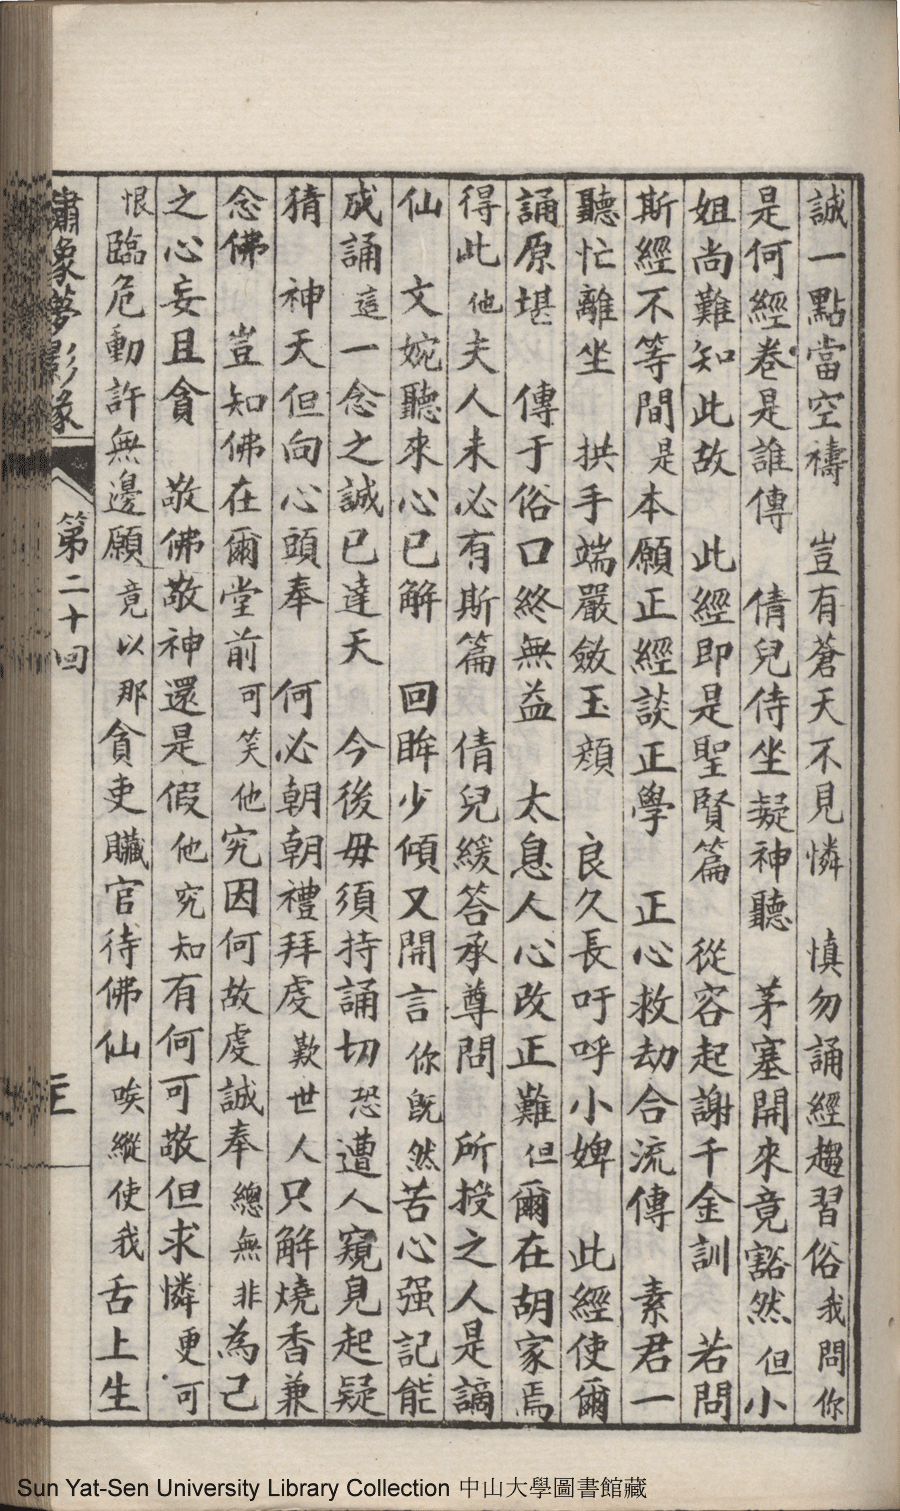 誠一點當空禱　豈有蒼天不見憐　慎勿誦經趨習俗我問你
是何經卷是誰傳　倩兒侍坐凝神聽　茅塞開來竟豁然但小
姐尚難知此故　此經即是聖賢篇　從容起謝千金訓　若問
斯經不等間是本願正經談正學　正心救劫合流傳　素君一
聽忙離坐　拱手端嚴斂玉顏　良久長吁呼小婢　此經使爾
誦原堪　傳于俗口終無益　太息人心改正難但爾在胡家焉
得此他夫人未必有斯篇　倩兒緩答承尊問　所授之人是謫
仙　文婉聽來心已解　回眸少傾又開言你既然苦心强記能
成誦這一念之誠已達天　今後毋須持誦切恐遭人窺見起疑
猜　神天但向心頭奉　何必朝朝禮拜虔歎世人只解燒香兼
念佛　豈知佛在爾堂前可笑他究因何故虔誠奉總無非為己
之心妄且貪　敬佛敬神還是假他究知有何可敬但求憐更可
恨臨危動許無邊願竟以那貪吏贓官待佛仙唉縱使我舌上生
繡像夢影緣
第二十回
Sun Yat-Sen University Library Collection 中山大學圖書館藏